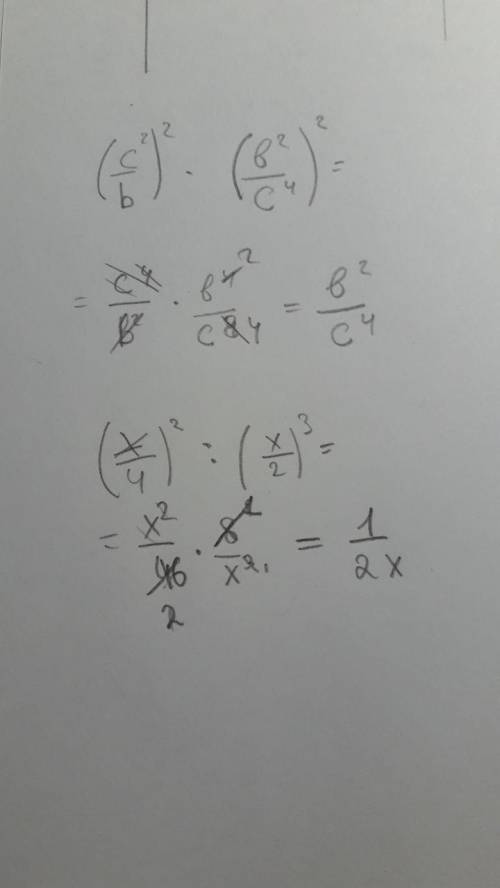 (c²/b)² · (в²/c⁴)² =
= c⁴/в² · в⁴ ²/c⁸ 4 = в²/c⁴
(x/4)² : (x/2)³ =
= x²/16 2 · 8 1/x = 1/2x